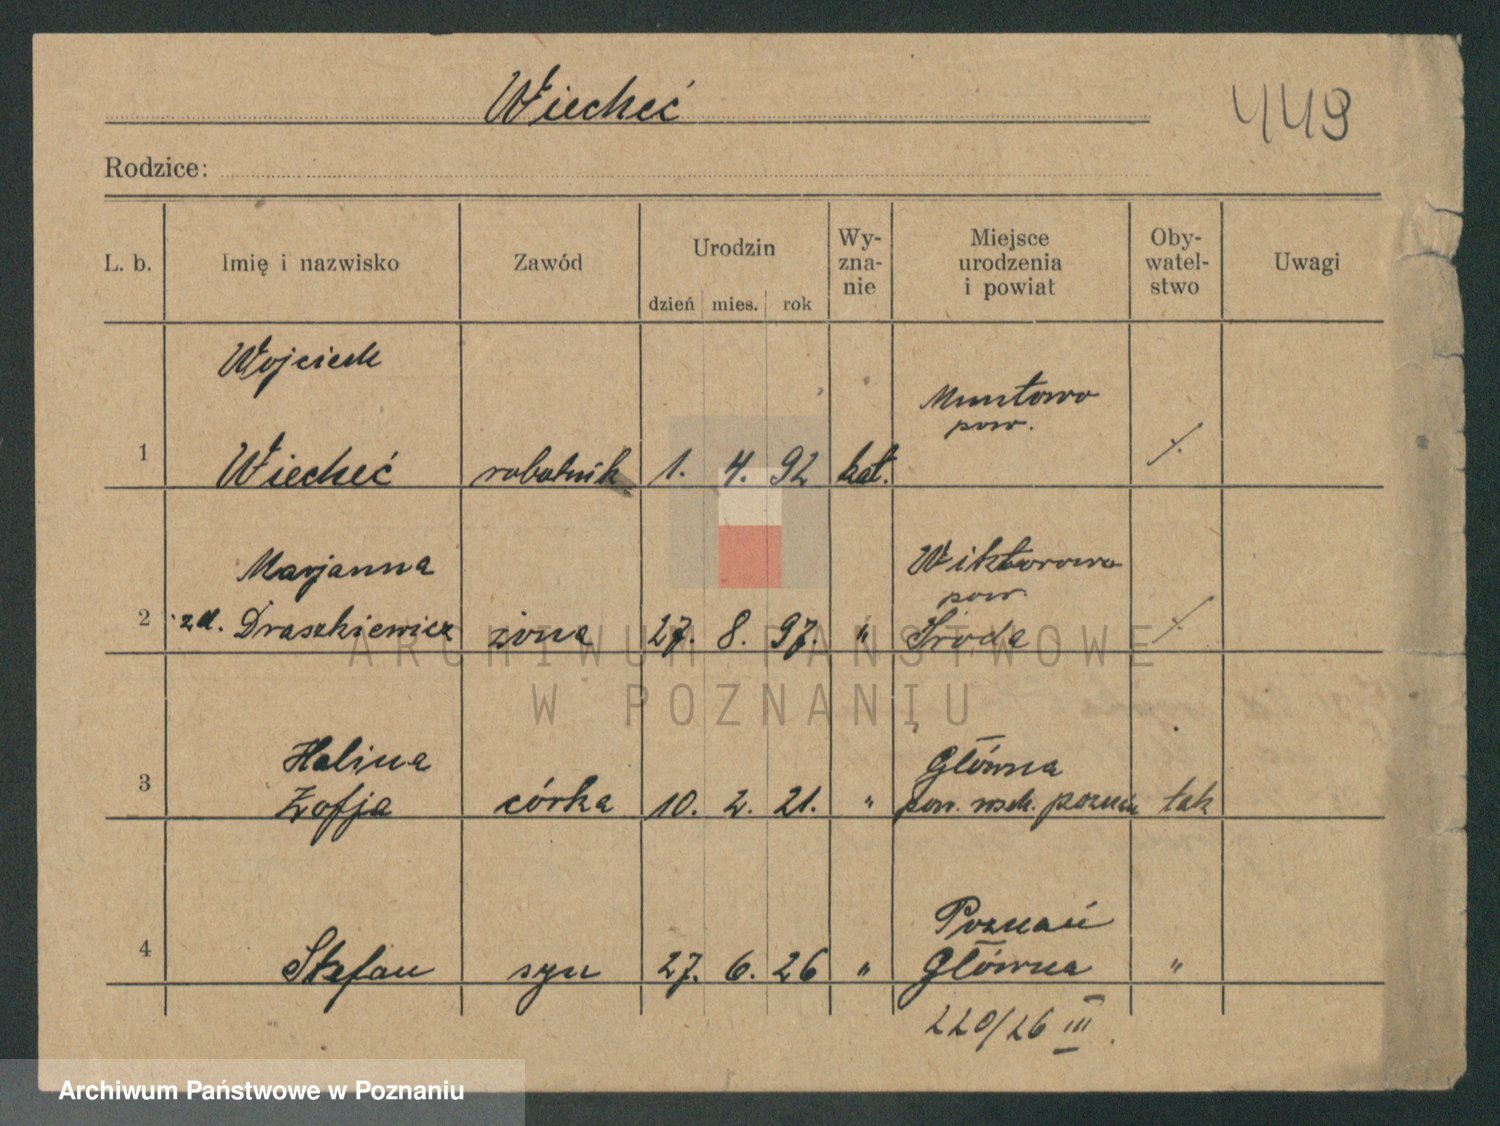 Wiecheć
449
Rodzice:
L. b.
Imię i nazwisko
Zawód
Urodzin
dzień mies. rok
Wy-
zna-
nie
Miejsce
urodzenia
i powiat
Oby-
watel-
stwo
Uwagi
Wojciech
1 Wiecheć robotnik 1. 4. 92 kat.
Muntowo
pow.
Marjanna
2 zd. Draszkiewicz żona 27. 8. 97. "
Wiktorowo
pow
Środa
Halina
3 Zofja córka 10. 2. 21. "
Główna
pow. wsch. poznań tak
4 Stefan syn 27. 6. 26 "
Poznań
Główna "
220/26 III.
ARCHIWUM PAŃSTWOWE
W POZNANIU
Archiwum Państwowe w Poznaniu